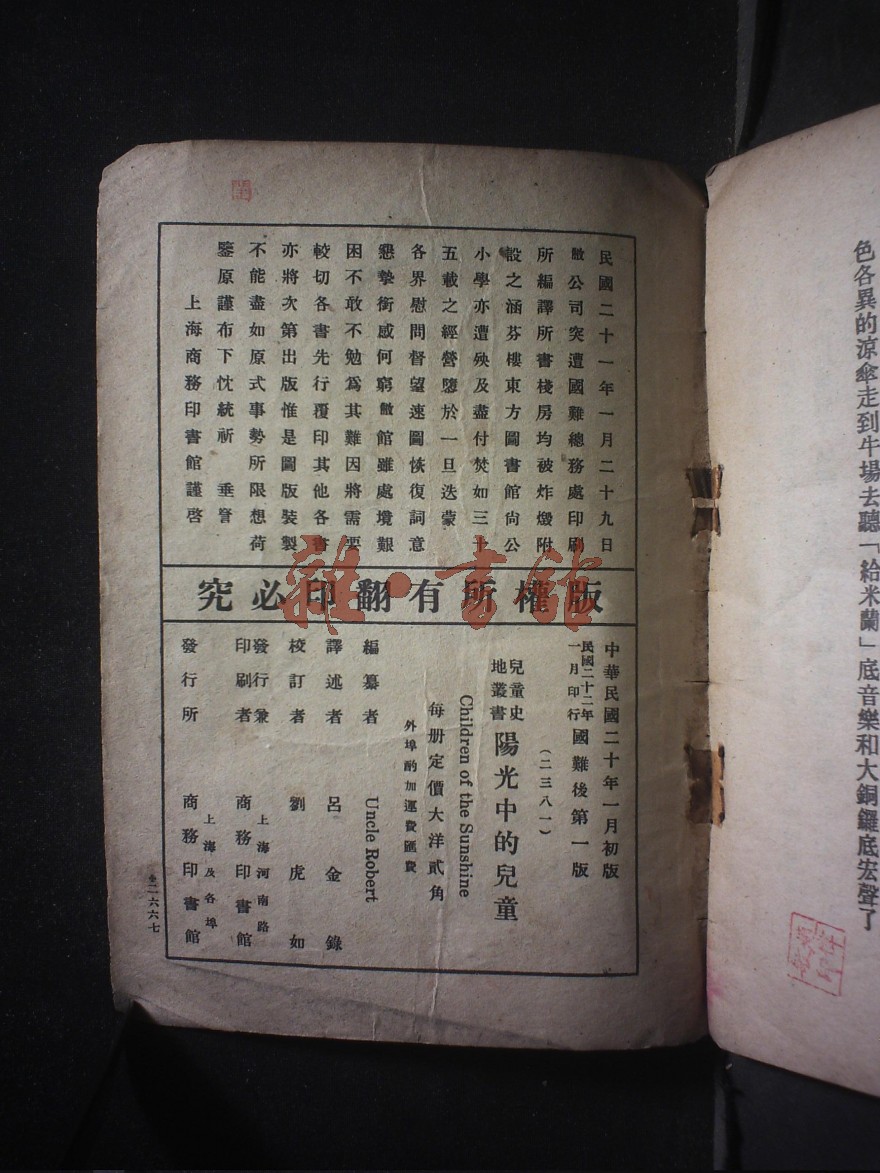 色各異的涼傘走到牛場去聽「給米蘭」底音樂和大銅鑼底宏聲了
民國二十一年一月二十九日
敝公司突遭國難總務處印刷
所編譯所書棧房均被炸燬附
設之涵芬樓東方圖書館尚公
小學亦遭殃及盡付焚如三十
五載之經營隳於一旦迭蒙
各界慰問督望速圖恢復詞意
懇摯銜感何窮敝館雖處境艱
困不敢不勉為其難因將需要
較切各書先行覆印其他各書
亦將次第出版惟是圖版裝製
不能盡如原式事勢所限想荷
鑒原謹布下忱統祈 垂詧
上海商務印書館謹啓
版權所有翻印必究
中華民國二十年一月初版
民國二十二年一月印行 國難後第一版
(二三八一)
兒童史地叢書 陽光中的兒童
Children of the Sunshine
每册定價大洋貳角
外埠酌加運費匯費
編纂者 Uncle Robert
譯述者 呂金錄
校訂者 劉虎如
發行兼印刷者 上海河南路 商務印書館
發行所 上海及各埠 商務印書館
雜·書館